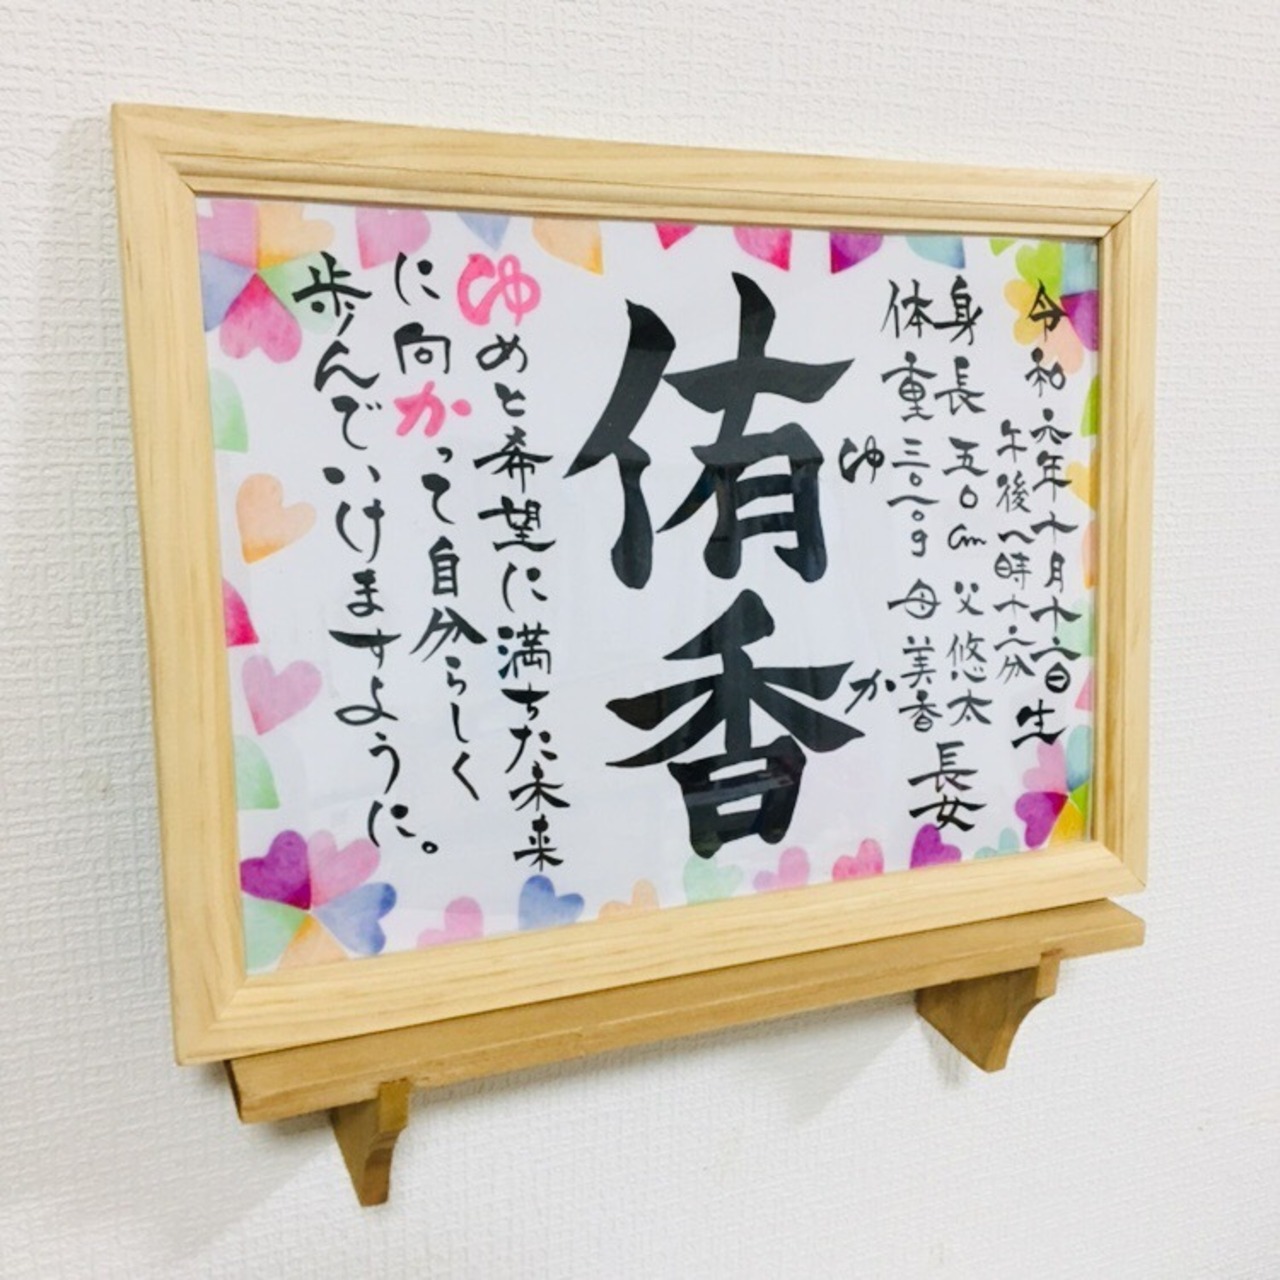 令和六年十月十六日生
午後八時十六分
身長五〇cm 父 悠太
体重三〇八〇g 母 美香
長女
ゆ か
侑香
ゆめと希望に満ちた未来
に向かって自分らしく
歩んでいけますように。